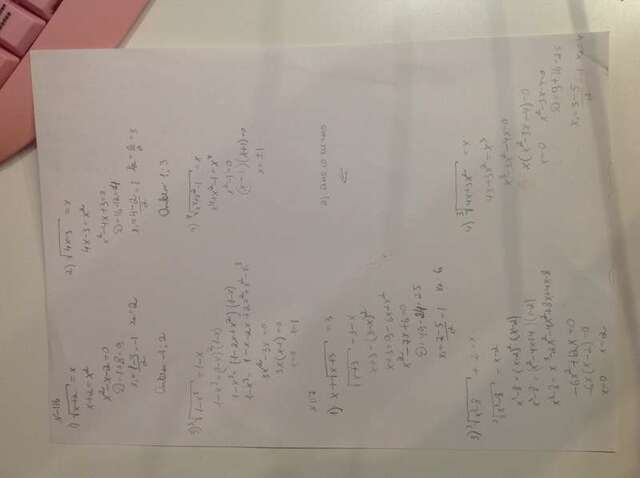 1) √(x+2) = x
x+2 = x²
x² - x - 2 = 0
D = 1+8 = 9
x₁ = (1-3)/2 = -1 x₂ = 2
Ответ -1; 2
2) √(4x-3) = x
4x-3 = x²
x² - 4x + 3 = 0
D = 16-12 = 4
x₁ = (4-2)/2 = 1 x₂ = 6/2 = 3
Ответ 1; 3
3) ³√(1-x³) = 1-x
1-x³ = (1-x)²(1-x)
1-x³ = (1-2x+x²)(1-x)
1-x³ = 1-x-2x+2x²+x²-x³
3x² - 3x = 0
3x(x-1) = 0
x=0 x=1
4) ⁴√(x⁴+x²-1) = x
x⁴+x²-1 = x⁴
x²-1 = 0
(x-1)(x+1) = 0
x = ±1
1) x+√(x+3) = 3
√(x+3) = 3-x
x+3 = (3-x)²
x+3 = 9-6x+x²
x² - 7x + 6 = 0
D = 49-24 = 25
x₁ = (7-5)/2 = 1 x₂ 6
2)
3) ³√(x³-8) + 2 = x
³√(x³-8) = x-2
x³-8 = (x-2)²(x-2)
x³-8 = (x²-4x+4)(x-2)
x³-8 = x³-2x²-4x²+8x+4x-8
-6x²+12x = 0
-6x(x-2) = 0
x=0 x=2
4) ³√(4x+3x²) = x
4x+3x² = x³
x³-3x²-4x=0
x(x²-3x-4)=0
x=0 x²-3x-4=0
D=9+16=25
x₁ = (3-5)/2 = -1